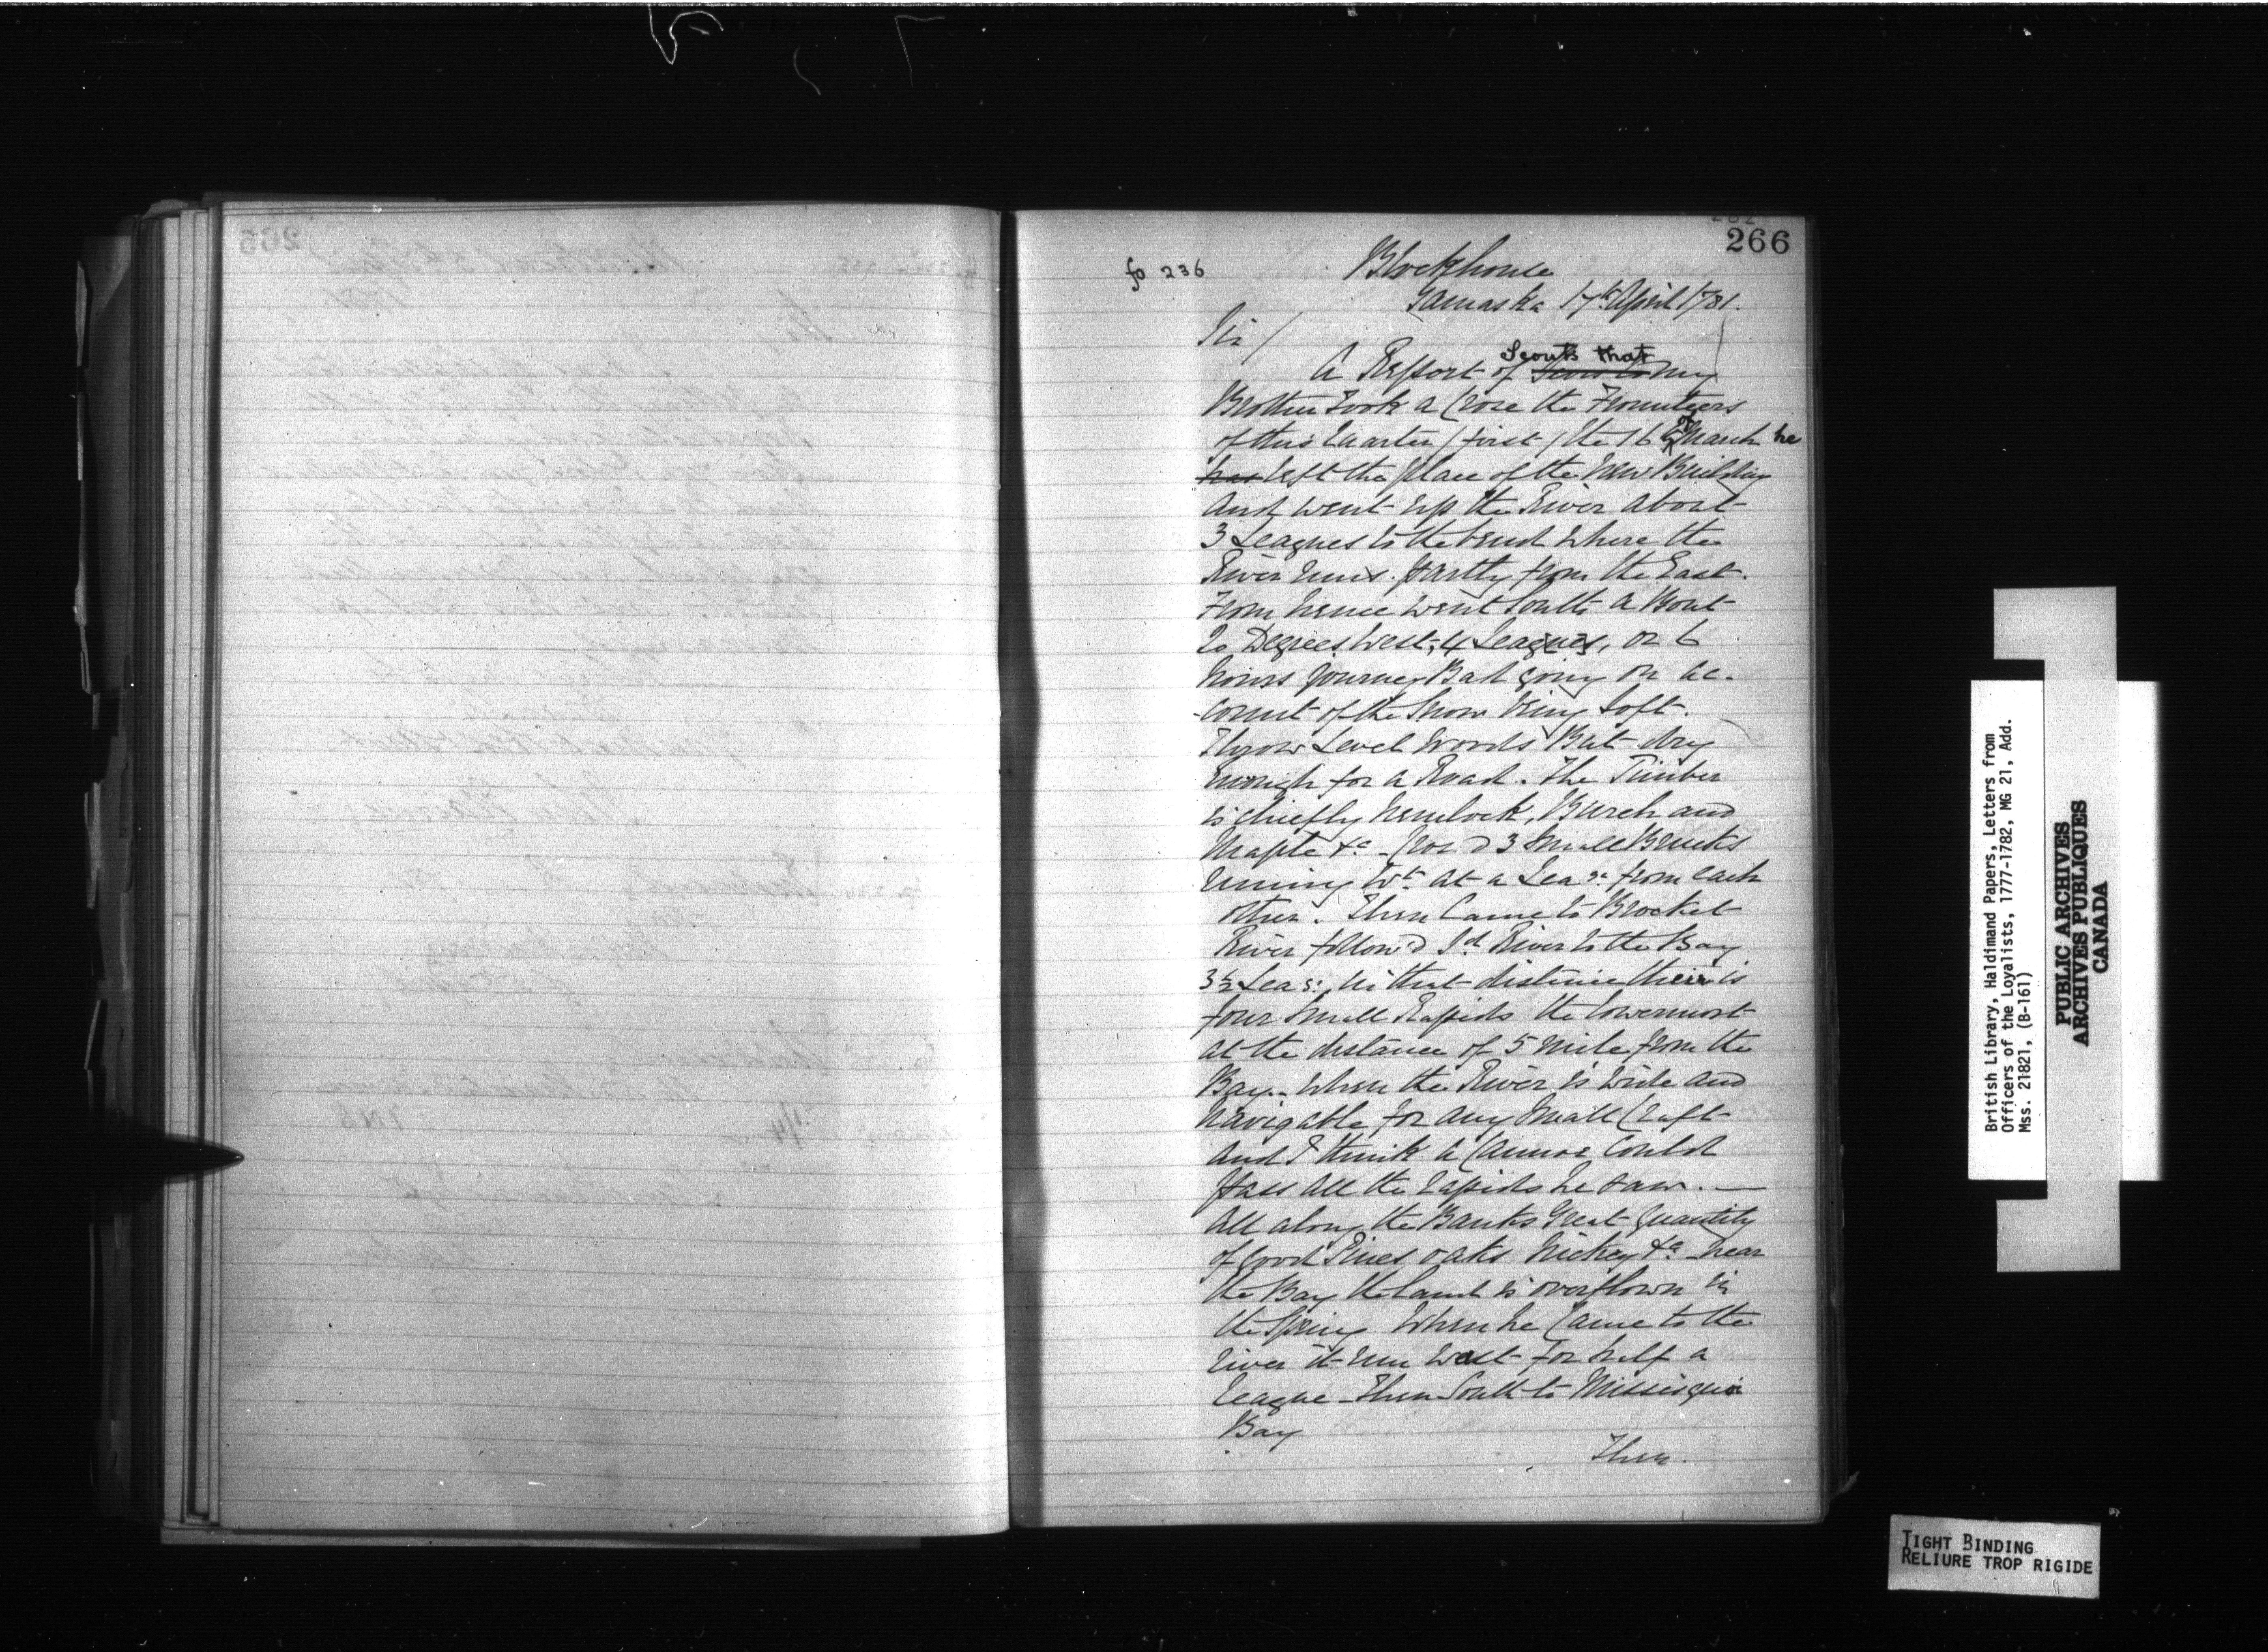 266
fo 236
Blockhouse
Yamaska 17th April 1781.
Sir /
Scouts that
A Report of my
Brother took a Crose the Frounteers
of this Quarter / first / the 16 of March he
has left the place of the New Building
and went up the River about
3 Leagues to the bend where the
River runs partly from the East.
From hence went South a Bout
20 Degrees West, 4 Leagues, or 6
hours journey Bad going on ac-
-count of the Snow being Soft.
Throw Level Woods But dry
enough for a Road. The Timber
is chiefly hemlock, Burch and
Maple &c - Crosd 3 Small Brooks
runing Wt at a Leag. from each
other. Then Came to Brocket
River follow'd Sd River to the Bay
3½ Leas: in that distance their is
four Small Rapids the lowermost
at the distance of 5 mile from the
Bay.. when the River is wide and
navigable for any Small Craft
and I think a Cannoe Could
pass all the rapids he saw. —
All along the Banks Great Quantity
of good Pines oaks hickey &c near
the Bay the Land is overflown in
the Spring When he Came to the
river it run west for half a
league - then South to Missisquoi
Bay
Then.
British Library, Haldimand Papers, Letters from
Officers of the Loyalists, 1777-1782, MG 21, Add.
Mss. 21821, (B-161)
PUBLIC ARCHIVES
ARCHIVES PUBLIQUES
CANADA
TIGHT BINDING
RELIURE TROP RIGIDE